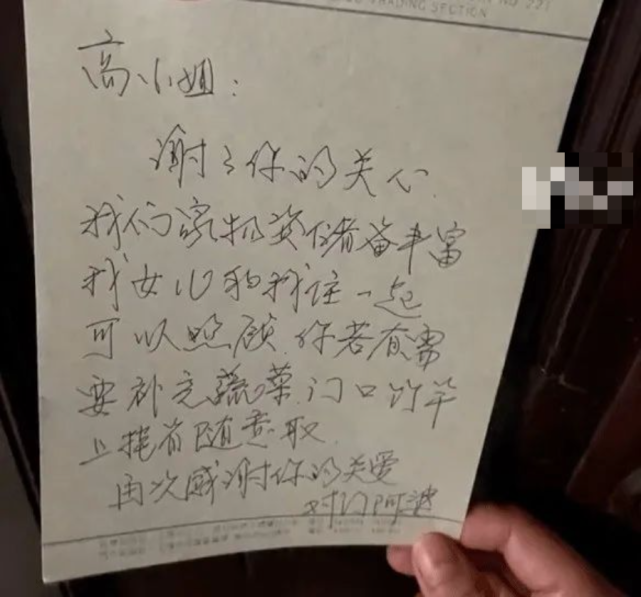 TRADING SECTION
高小姐：
谢谢你的关心
我们家物资储备丰富
我女儿和我住一起
可以照顾.你若有需
要补充蔬菜.门口竹竿
上挂着随意取
再次感谢你的关爱
对门阿婆